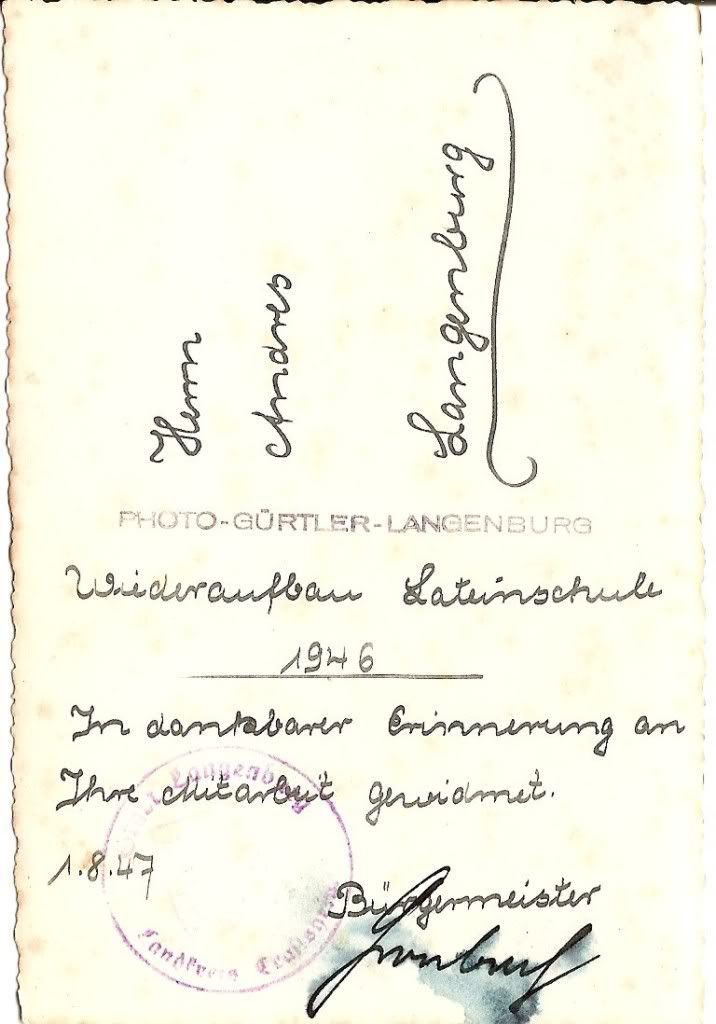 Herrn
Andres
Langenburg
PHOTO-GÜRTLER-LANGENBURG
Wiederaufbau Lateinschule
1946
In dankbarer Erinnerung an
Ihre Mitarbeit gewidmet.
1.8.47
Bürgermeister
Stadt Langenburg
Landkreis Crailsheim